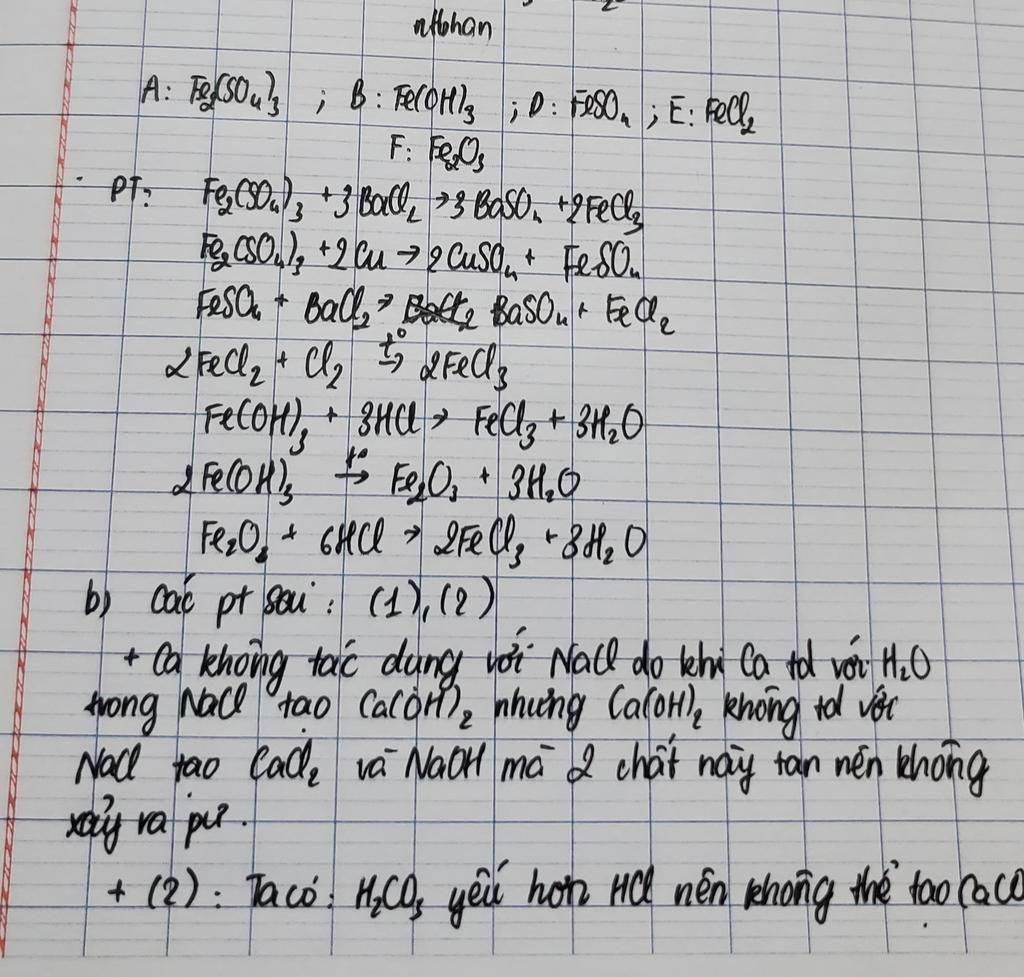 nhbhan
A: Fe₂(SO₄)₃ ; B: Fe(OH)₃ ; D: FeSO₄ ; E: FeCl₂
F: Fe₂O₃
PT: Fe₂(SO₄)₃ + 3BaCl₂ → 3BaSO₄ + 2FeCl₃
Fe₂(SO₄)₃ + 2Cu → 2CuSO₄ + FeSO₄
FeSO₄ + BaCl₂ → BaSO₄ + FeCl₂
2FeCl₂ + Cl₂ t° → 2FeCl₃
Fe(OH)₃ + 3HCl → FeCl₃ + 3H₂O
2Fe(OH)₃ t° → Fe₂O₃ + 3H₂O
Fe₂O₃ + 6HCl → 2FeCl₃ + 3H₂O
b) Các pt sai: (1), (2)
+ Ca không tác dụng với NaCl do khi Ca td với H₂O
trong NaCl tạo Ca(OH)₂ nhưng Ca(OH)₂ không td với
NaCl tạo CaCl₂ và NaOH mà 2 chất này tan nên không
xảy ra pư.
+ (2): Ta có: H₂CO₃ yếu hơn HCl nên không thể tạo CaCO